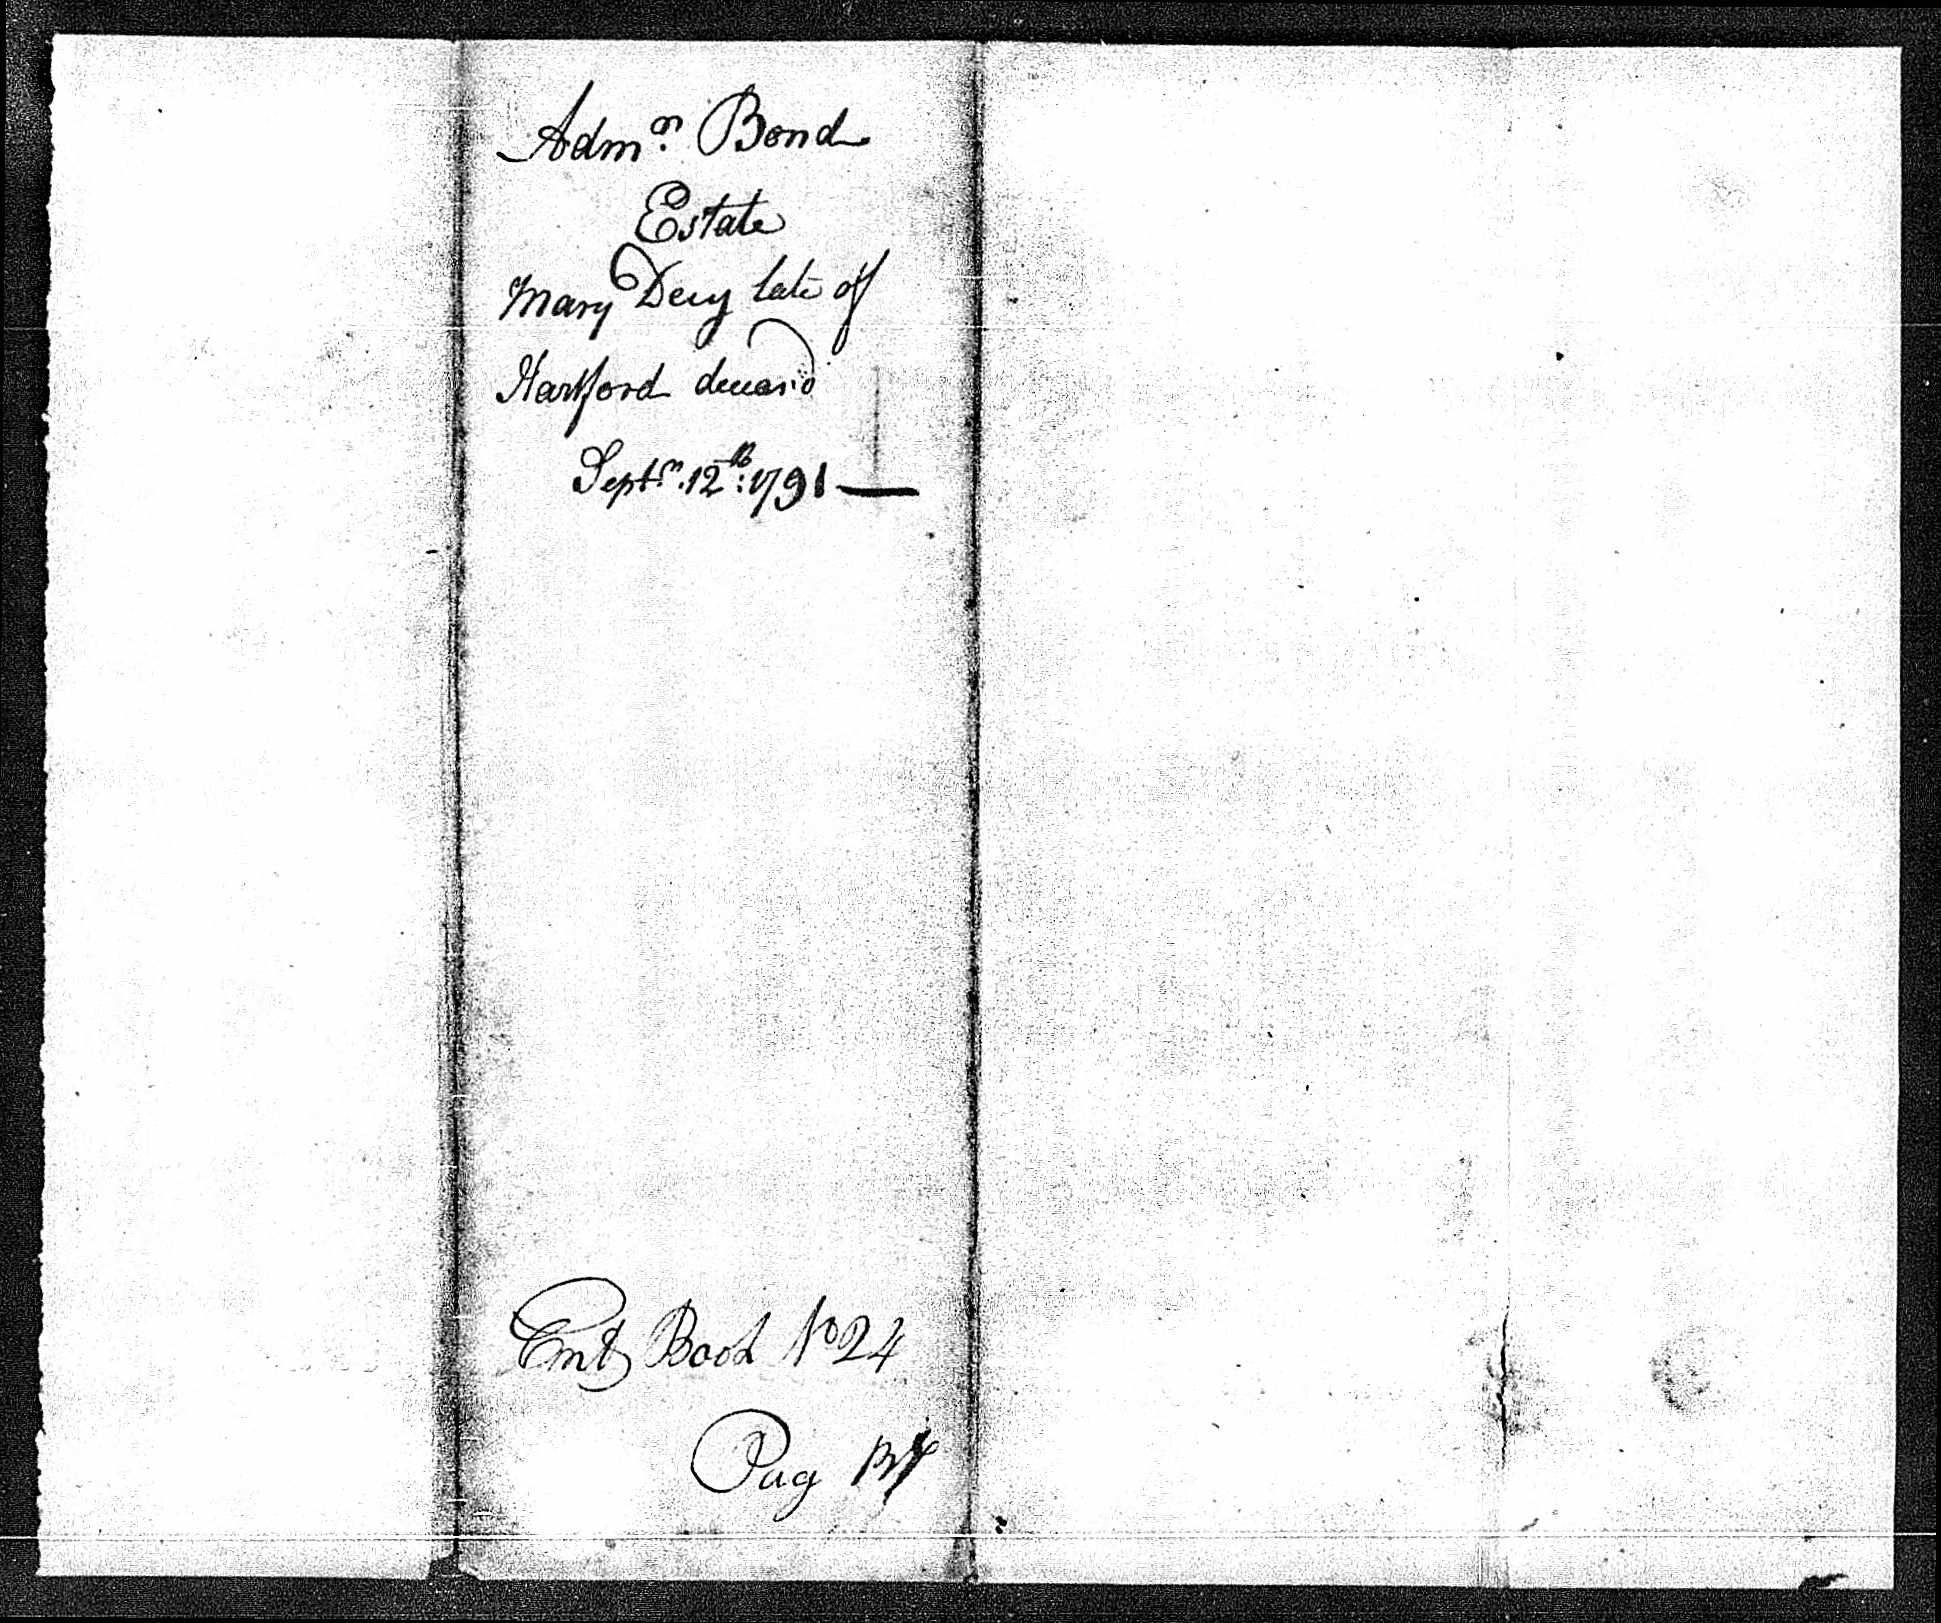 Admn. Bond
Estate
Mary Dery late of
Hartford deceasd
Septr. 12th: 1791 —
Entd Book No 24
Pag